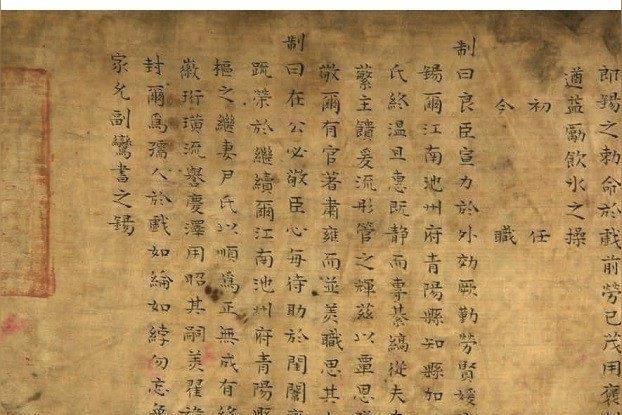 即錫之勅命於戲前勞已茂用褒
遒益勵飲水之操
初 任
今 職
制曰良臣宣力於外効厥勤勞賢媛
錫爾江南池州府青陽縣知縣加
氏終温且惠既静而專綦縞從夫
蘩主饋爰流彤管之輝茲以覃恩
敬爾有官著肅雍而並美職思其
制曰在公必敬臣心每待助於閨闈
疏榮於繼續爾江南池州府青陽縣
樞之繼妻尹氏以順爲正無成有終
徽珩璜流譽慶澤用昭其嗣美翟
封爾爲孺人於戲如綸如綍勿忘
家允副鸞書之錫